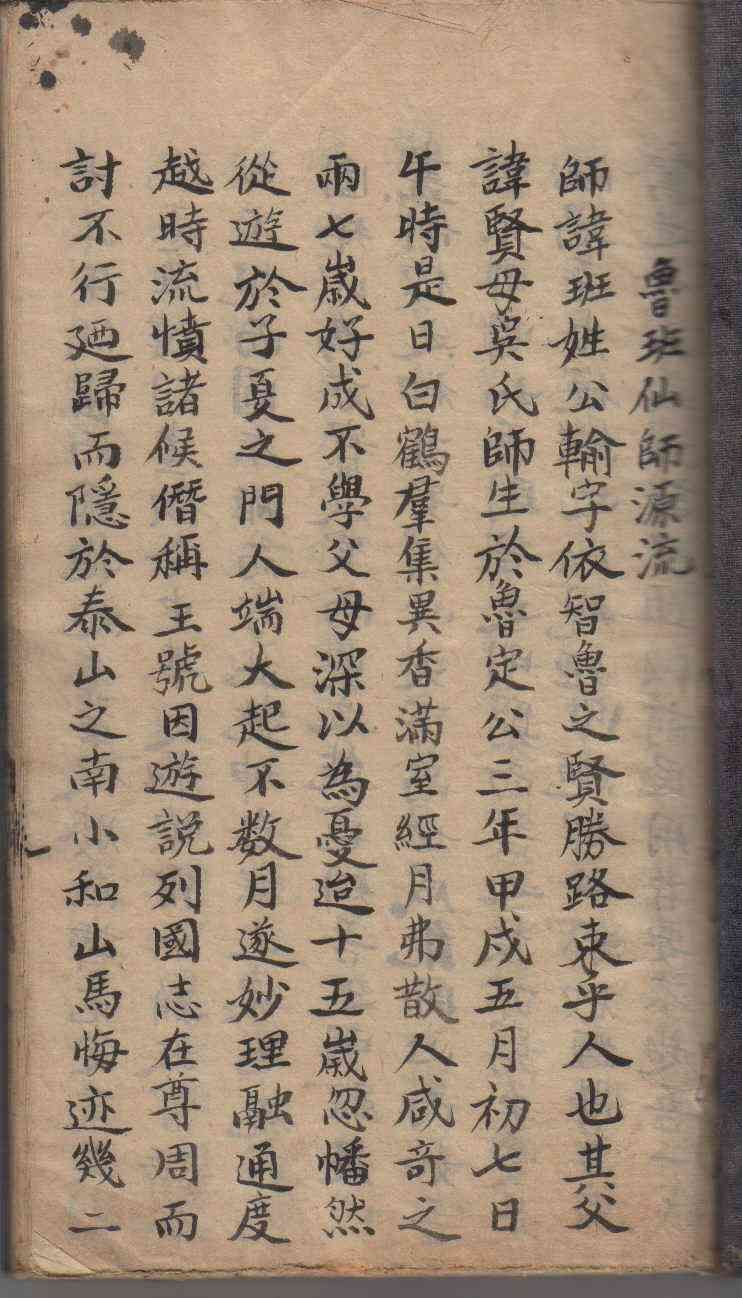 魯班仙師源流
師諱班姓公輸字依智魯之賢勝路東乎人也其父
諱賢母吳氏師生於魯定公三年甲戌五月初七日
午時是日白鶴羣集異香滿室經月弗散人咸奇之
兩七嵗好成不學父母深以為憂迨十五嵗忽幡然
從遊於子夏之門人端大起不数月遂妙理融通度
越時流憤諸候僭稱王號因遊說列國志在尊周而
討不行廼歸而隱於泰山之南小和山馬悔迹幾二